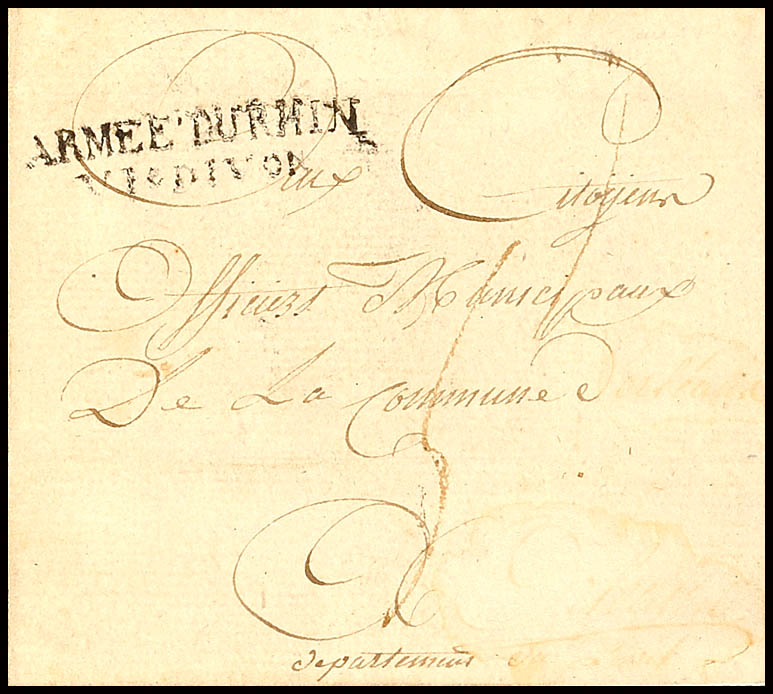 ARMEE DU RHIN
VIe DIVon
Aux Citoyens
Officiers Municipaux
De La Commune
departement du